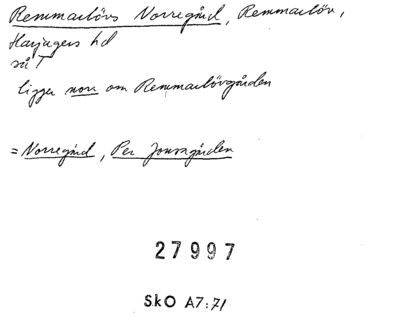 Remmarlövs Norregård, Remmarlöv,
Harjagers hd
så T
ligger norr om Remmarlövgården
= Norregård, Per Jonsagården
27997
SkO A7:71